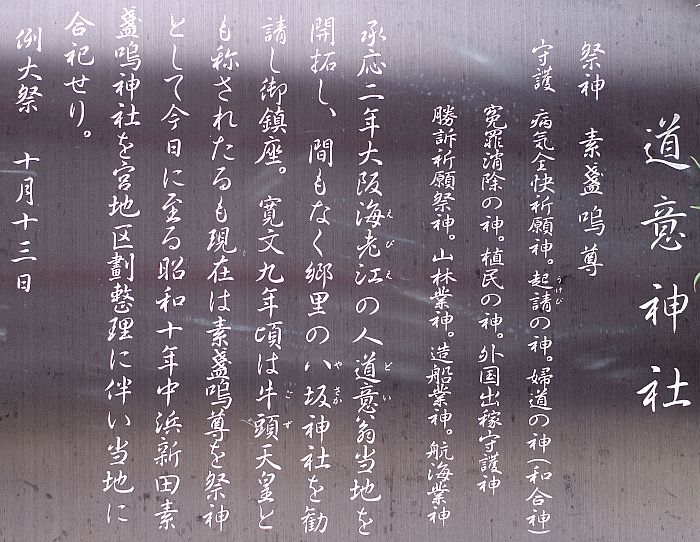 道意神社
祭神　素盞嗚尊
守護　病気全快祈願神。起請の神。婦道の神(和合神)
冤罪消除の神。植民の神。外国出稼守護神
勝訴祈願祭神。山林業神。造船業神。航海業神
承応二年大阪海老江の人道意翁当地を
開拓し、間もなく郷里の八坂神社を勧
請し御鎮座。寛文九年頃は牛頭天皇と
も称されたるも現在は素盞嗚尊を祭神
として今日に至る昭和十年中浜新田素
盞嗚神社を宮地区劃整理に伴い当地に
合祀せり。
例大祭　十月十三日